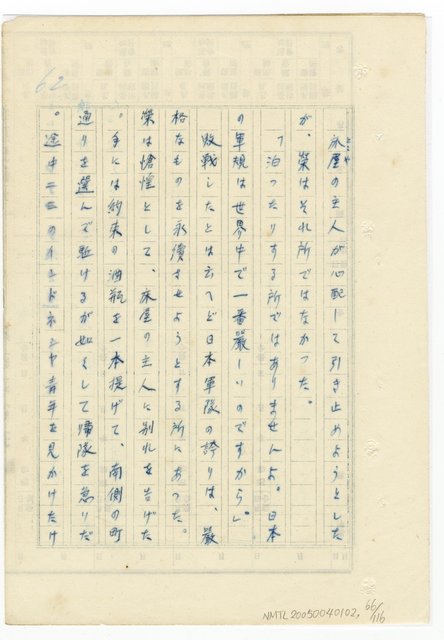 62
とこや
床屋の主人が心配して引き止めようとした
が、榮はそれ所ではなかつた。
「泊つたりする所ではありませんよ。日本
の軍規は世界中で一番嚴しいのですから」。
敗戦したとは云へど日本軍隊の誇りは、嚴
格なものを永續させようとする所にあつた。
榮は愴惶として、床屋の主人に別れを告げた
。手には約束の酒瓶を一本提げて、南側の町
通りを選んで駈けるが如くして帰隊を急いだ
。途中二三のインドネシヤ青年を見かけたけ
NMTL20050040102,
66/116